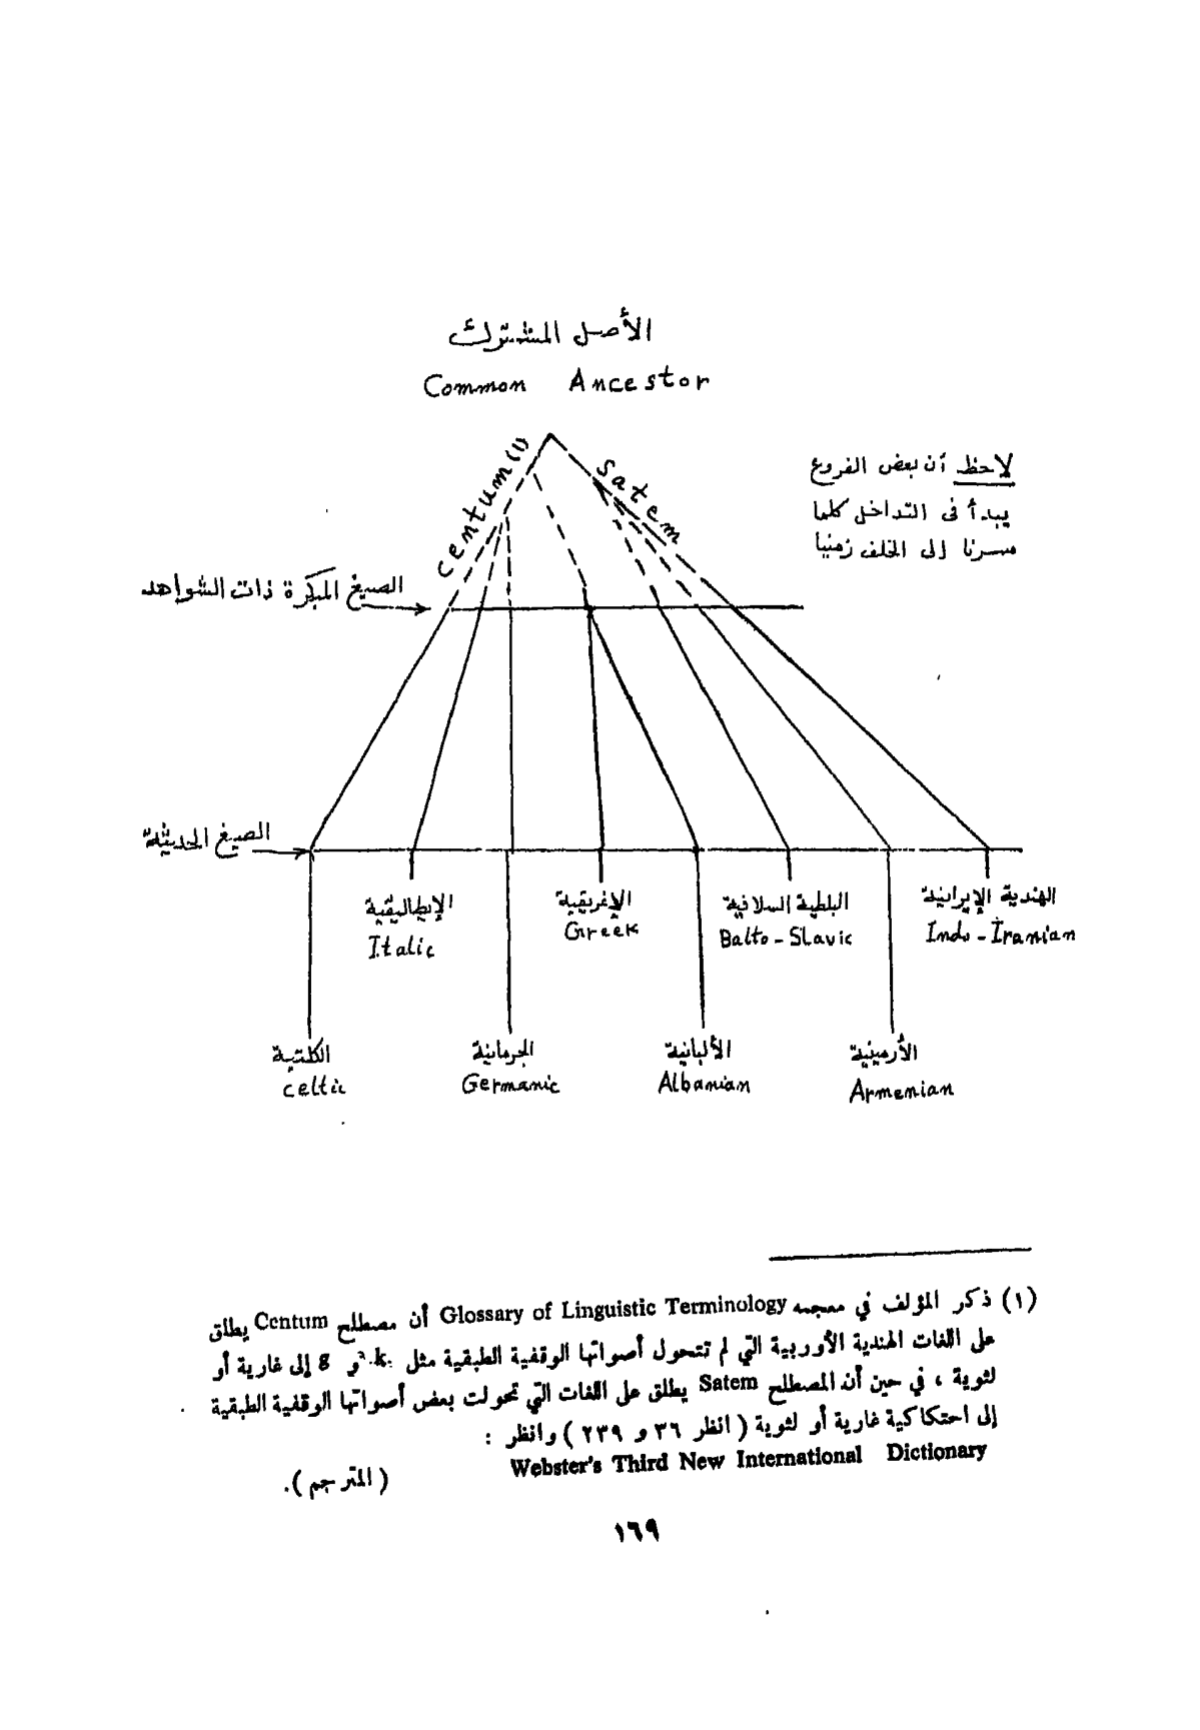 الأصل المشترك
Common Ancestor
centum (1)
satem
لاحظ أن بعض الفروع
يبدأ في التداخل كلما
سرنا إلى الخلف زمنيا
الصيغ المبكرة ذات الشواهد
الصيغ الحديثة
الهندية الإيرانية
Indo - Iranian
البلطية السلافية
Balto - Slavic
الإغريقية
Greek
الإيطاليقية
Italic
الأرمينية
Armenian
الألبانية
Albanian
الجرمانية
Germanic
الكلتية
celtic
(١) ذكر المؤلف في معجمه Glossary of Linguistic Terminology أن مصطلح Centum يطلق
على اللغات الهندية الأوربية التي لم تتحول أصواتها الوقفية الطبقية مثل k و g إلى غارية أو
لثوية ، في حين أن المصطلح Satem يطلق على اللغات التي تحولت بعض أصواتها الوقفية الطبقية
إلى احتكاكية غارية أو لثوية ( انظر ٣٦ و ٢٣٩ ) وانظر :
Webster's Third New International Dictionary
( المترجم ).
١٦٩